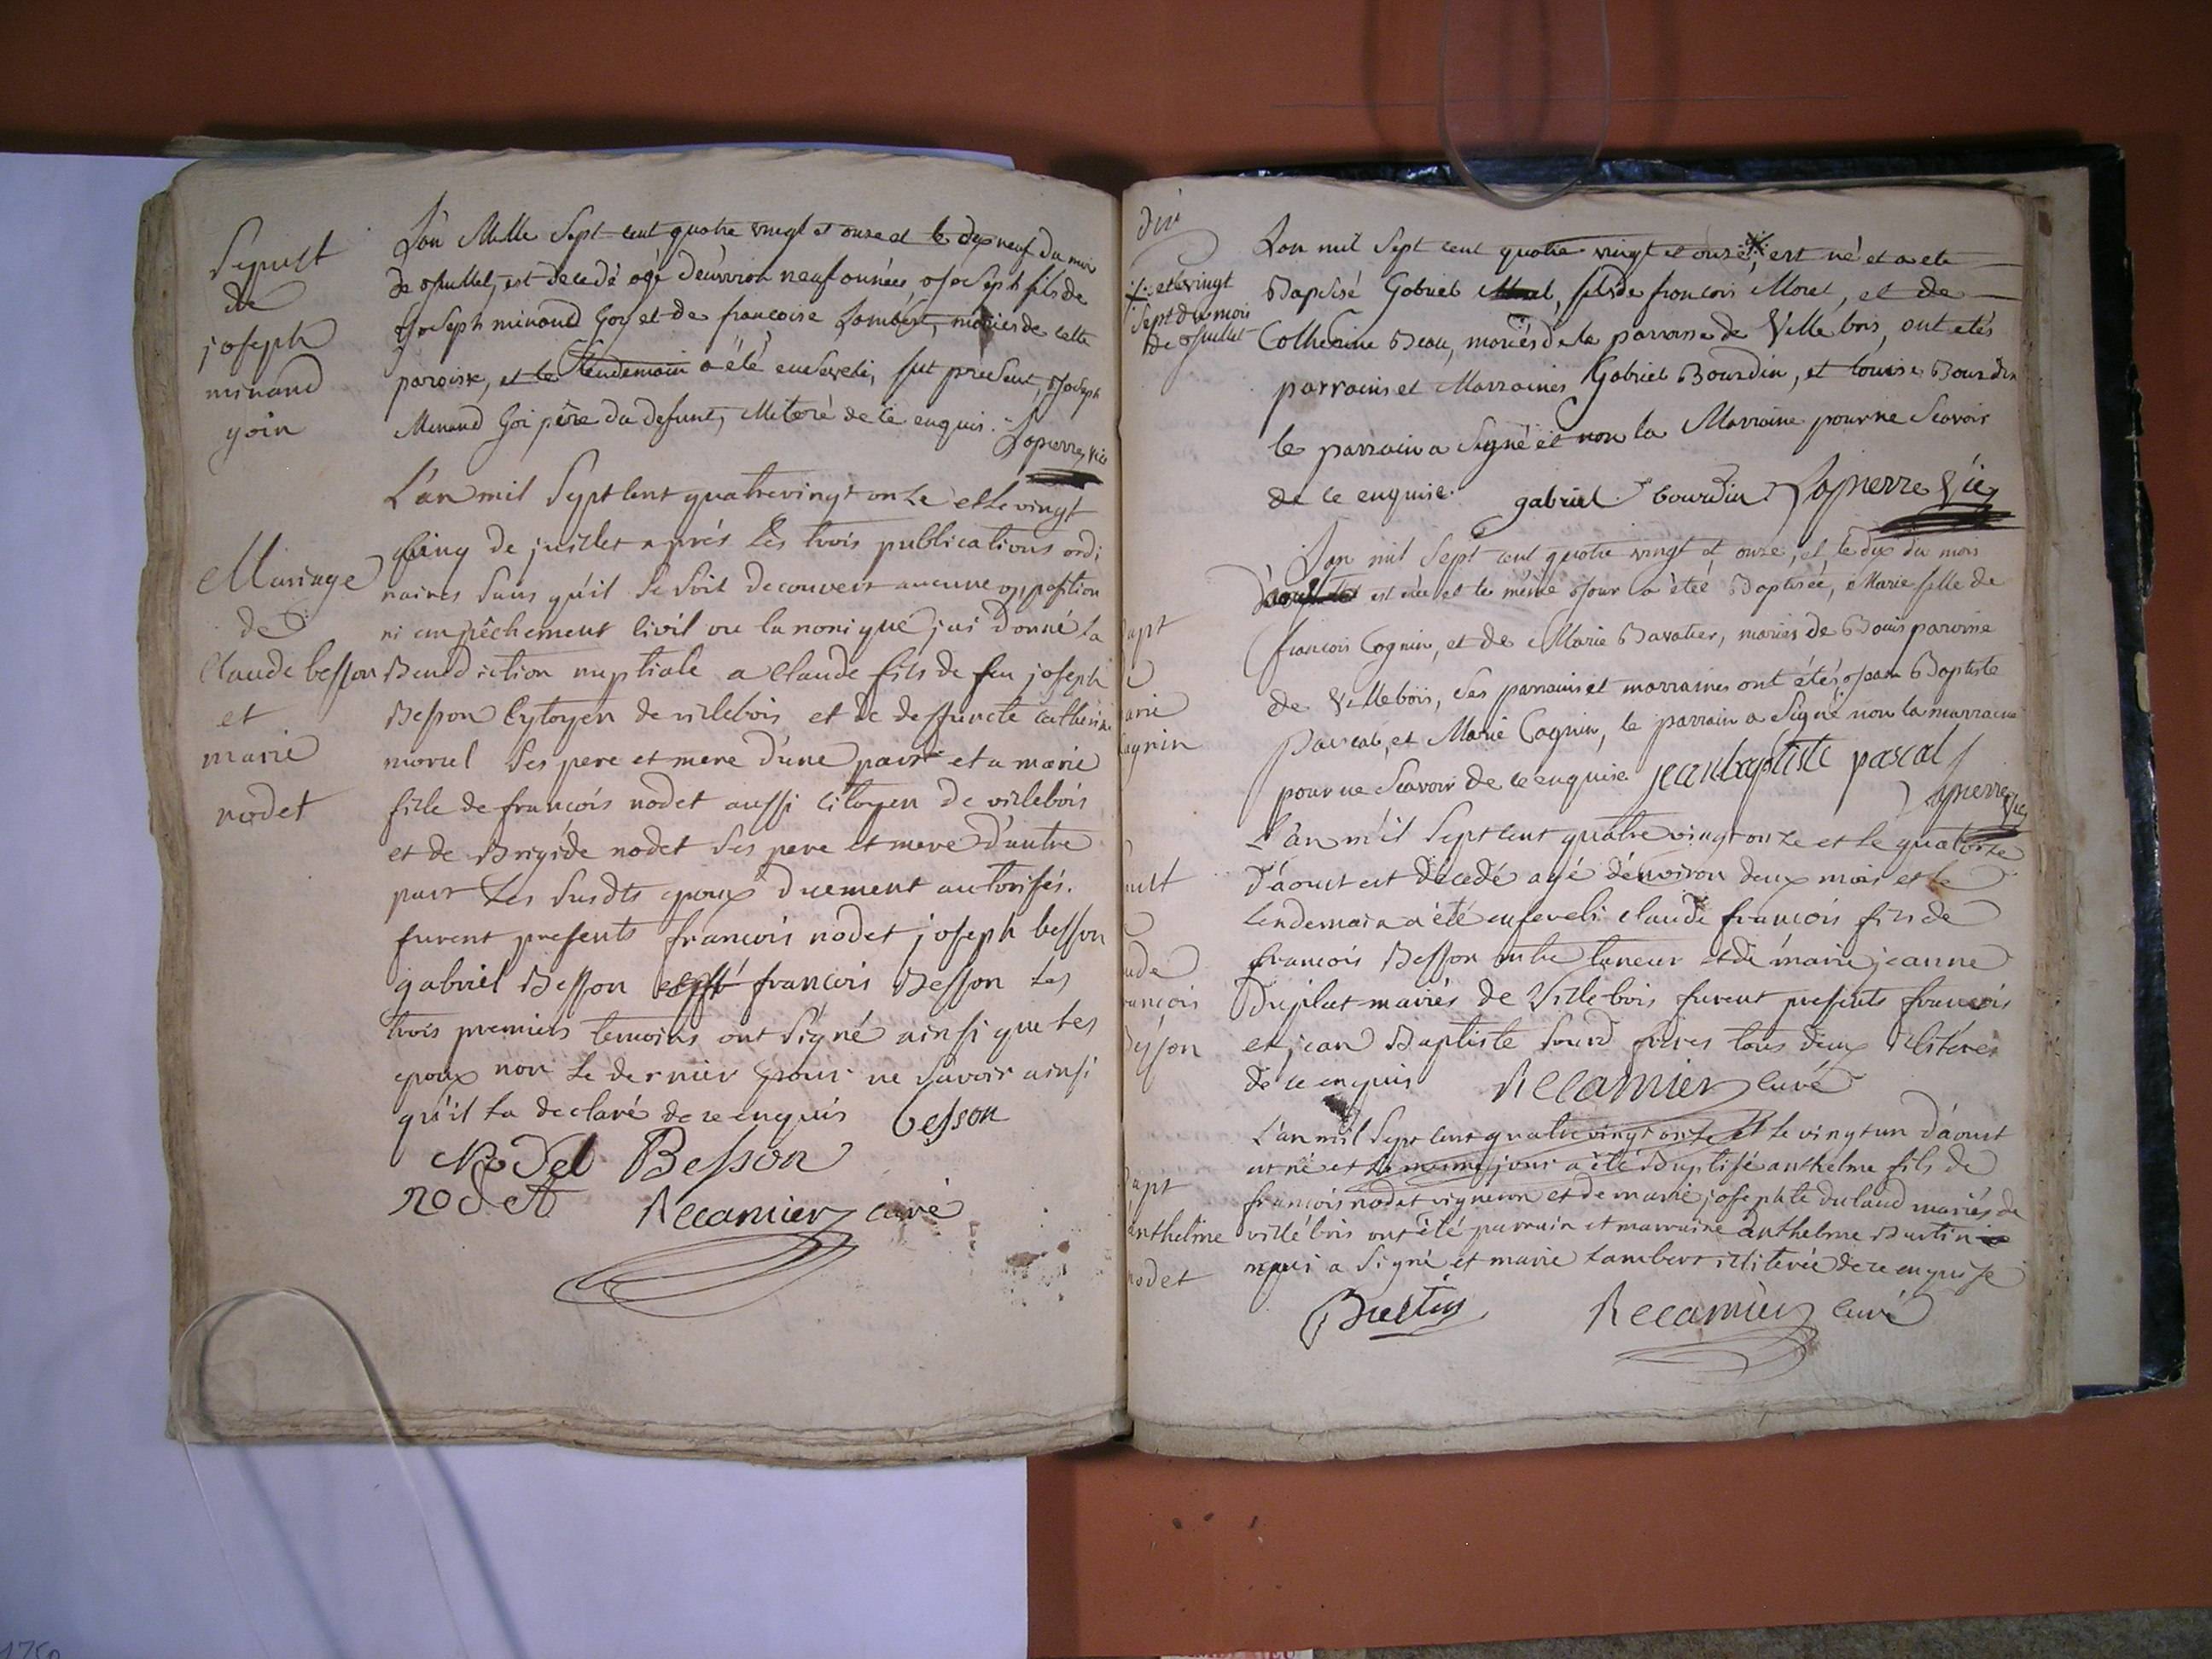 Sepult
de
joseph
minand
goin
L'an Mille Sept cent quatre vingt et onze et le dix neuf du mois
de Juillet, est decedé agé d'environ neuf années, Joseph fils de
Joseph minand Goy et de francoise Lambert, mariés de cette
paroisse, et le lendemain a été enseveli, fut présent, Joseph
Menand Goi père du defunt, illiteré de ce enquis. Lapierre, vic
Mariage
de
Claude besson
et
marie
nodet
L'an mil Sept cent quatre vingt onze et le vingt
cinq de juillet après les trois publications ordi
naires sans qu'il se soit decouvert aucune opposition
ni empêchement civil ou canonique j'ai donné la
Benediction nuptiale a Claude fils de feu joseph
Besson Cytoyen de villebois et de deffuncte catherine
morel ses pere et mere d'une part et a marie
fille de francois nodet aussi citoyen de villebois
et de Brigide nodet ses pere et mere d'autre
part les susdts epoux duement autorisés.
furent presents francois nodet joseph besson
gabriel Besson francois Besson les
trois premiers temoins ont signé ainsi que les
epoux non le dernier pour ne savoir ainsi
qu'il l'a declaré de ce enquis besson
Nodet Besson
nodet Recamier curé
L'an mil Sept cent quatre vingt et onze, est né et a eté
./. et le vingt
sept du mois
de Juillet
Baptisé Gabriel, fils de francois Morel, et de
Catherine Beau, mariés de la paroisse de Villebois, ont etés
parrains et Marraines Gabriel Bourdin, et louise Bourdin
le parrain a Signé et non la Marraine pour ne Scavoir
de ce enquise. gabriel bourdin Lapierre Vic
L'an mil Sept cent quatre vingt et onze, et le dix du mois
d'aoust est née et le même Jour a étée Baptisée, Marie fille de
francois Cognin, et de Marie Bavatier, mariés de Bouis paroisse
de Villebois, Ses parrains et marraines ont étés Jean Baptiste
Pascal, et Marie Cognin, le parrain a Signé non la marraine
pour ne Scavoir de ce enquise jean baptiste pascal
Lapierre Vic
bapt
arie
cognin
L'an mil Sept cent quatre vingt onze et le quatorze
d'aoust est décedé agé d'environ deux mois et le
lendemain a été enseveli claude francois fils de
francois Besson et de marie jeanne
Duplat mariés de Villebois furent presents francois
et jean Baptiste Sourd freres tous deux illiterés
de ce enquis Recamier curé
pult
ude
rancois
Besson
L'an mil Sept cent quatre vingt onze et le vingt un d'aoust
est né et le meme jour a été Baptisé anthelme fils de
francois nodet vigneron et de marie josephte dulaud mariés de
villebois ont été parrain et marraine anthelme Bustin
qui a signé et marie Lambert illiterée de ce enquise
Bustin Recamier curé
bapt
anthelme
nodet